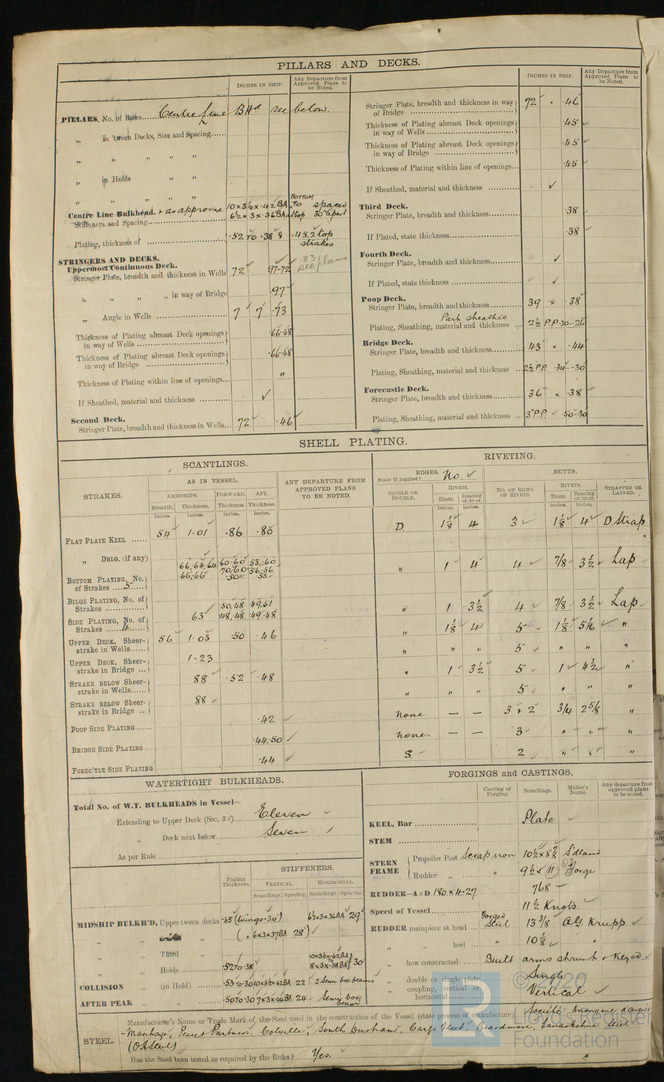 PILLARS AND DECKS.
INCHES IN SHIP.
Any Departure from Approved Plans to be Noted.
PILLARS, No. of Rows Centre line BHd see below.
„ in 'tween Decks, Size and Spacing
„ „ „ „
„ in Holds „ „
„ „ „ „
Centre Line Bulkhead. as approved
Stiffeners and Spacing
Plating, thickness of ·52 to ·38
STRINGERS AND DECKS.
Uppermost Continuous Deck.
Stringer Plate, breadth and thickness in Wells 72 ·97-72 ·83 see plans
„ „ „ „ in way of Bridge ·97
„ Angle in Wells 7 7 ·73
Thickness of Plating abreast Deck openings in way of Wells ·66-48
Thickness of Plating abreast Deck openings in way of Bridge ·66-48
Thickness of Plating within line of openings „
If Sheathed, material and thickness ✓
Second Deck.
Stringer Plate, breadth and thickness in Wells 72 ·46
INCHES IN SHIP.
Any Departure from Approved Plans to be Noted.
Stringer Plate, breadth and thickness in way of Bridge 72 × ·46
Thickness of Plating abreast Deck openings in way of Wells ·45
Thickness of Plating abreast Deck openings in way of Bridge ·45
Thickness of Plating within line of openings ·45
If Sheathed, material and thickness ✓
Third Deck.
Stringer Plate, breadth and thickness ·38
If Plated, state thickness ·38
Fourth Deck.
Stringer Plate, breadth and thickness ✓
If Plated, state thickness ✓
Poop Deck.
Stringer Plate, breadth and thickness 39 × ·38
Part sheathed
Plating, Sheathing, material and thickness 2½ P.P. ·30-·26
Bridge Deck.
Stringer Plate, breadth and thickness 43 × ·44
Plating, Sheathing, material and thickness 2½ P.P. ·34-·30
Forecastle Deck.
Stringer Plate, breadth and thickness 36 × ·38
Plating, Sheathing, material and thickness 3" P.P. ·50-·30
SHELL PLATING.
SCANTLINGS.
RIVETING.
STRAKES.
AS IN VESSEL.
AMIDSHIPS. FORWARD. AFT.
Breadth. Thickness. Thickness. Thickness.
Inches. Inches. Inches. Inches.
ANY DEPARTURE FROM APPROVED PLANS TO BE NOTED.
EDGES.
State if joggled? No.
SINGLE OR DOUBLE.
RIVETS.
Diam. Spacing cr. to cr.
BUTTS.
NO. OF ROWS OF RIVETS.
RIVETS.
Diam. Spacing cr. to cr.
STRAPPED OR LAPPED.
FLAT PLATE KEEL 54 1·01 ·86 ·80 D 1⅛ 4 3 1⅛ 4 D Strap
„ DBLG. (if any)
BOTTOM PLATING, No. of Strakes 5 66,64,64 60·60 53,·60 „ 1 4 4 7/8 3½ Lap
66,66 70,60 56·56
·50 ·55
BILGE PLATING, No. of Strakes 50,48 49·51 „ 1 3½ 4 7/8 3½ Lap
SIDE PLATING, No. of Strakes 63 48,48 49·48
UPPER DECK, Sheerstrake in Wells 56 1·03 ·50 ·46
UPPER DECK, Sheerstrake in Bridge 1·23
STRAKE BELOW Sheerstrake in Wells 88 ·52 ·48
STRAKE BELOW Sheerstrake in Bridge 88
POOP SIDE PLATING ·42 none — — 3 & 2 3/4 2⅝ „
BRIDGE SIDE PLATING ·44,·50 none — — 3 „ „ „
FOREC'TLE SIDE PLATING ·44 S 2 „ „ „
WATERTIGHT BULKHEADS.
Total No. of W.T. BULKHEADS in Vessel—
Extending to Upper Deck (Sec. 3 c) Eleven
„ Deck next below Seven
As per Rule
STIFFENERS.
Plating Thickness.
VERTICAL. HORIZONTAL.
Scantlings. Spacing. Scantlings. Spacing.
MIDSHIP BULKH'D, Upper tween decks (Wings·34) 6½×3×36BA 29"
„ „ 6×3×37BA 28"
„ Third „
„ Holds ·52 to ·38 10×3½×42BA 8×3×·38BA 30"
COLLISION „ (in Hold) 22 2 Semi box beams
AFTER PEAK „ „ 24 Semi box beam
FORGINGS and CASTINGS.
Casting or Forging. Scantlings. Maker's Name. Any departure from approved plans to be noted.
KEEL, Bar Plate
STEM
STERN FRAME Propeller Post Scrap iron 10½×8⅞
Rudder „ 9½×11 Forge
RUDDER—A×D 180.×4·27 768
Speed of Vessel 11½ Knots
RUDDER mainpiece at head Forged Steel 13⅜ A.G. Krupp
„ „ heel 10⅛ „
„ how constructed Built arms shrunk & Keyed
„ double or single plate Single
„ coupling, vertical or horizontal Vertical
STEEL. Manufacturer's Name or Trade Mark of the Steel used in the construction of the Vessel (state process of manufacture) Société Anonyme d'
Colville, South Durham, Cargo Fleet, Beardmore, Lanarkshire Steel
(O.H. Steel)
Has the Steel been tested as required by the Rules? Yes.
© 2020
Lloyd's Register
Foundation